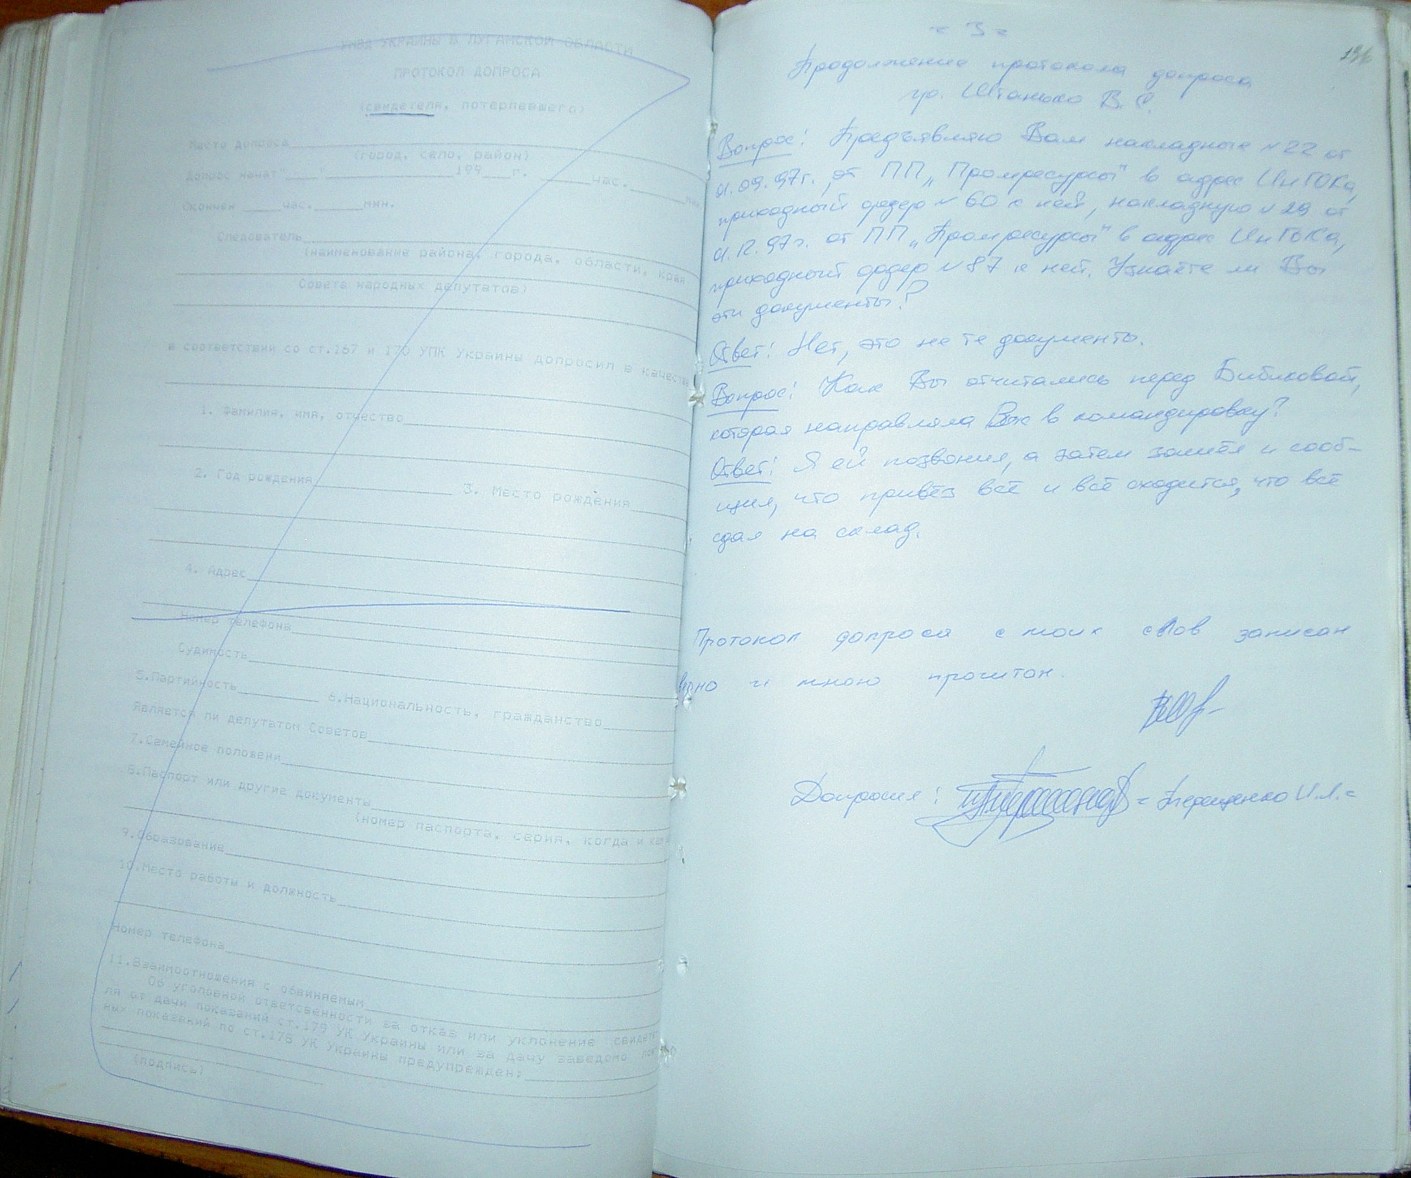 УМВД УКРАИНЫ В ЛУГАНСКОЙ ОБЛАСТИ
ПРОТОКОЛ ДОПРОСА
(свидетеля, потерпевшего)
Место допроса
(город, село, район)
Допрос начат "___" 199__г. ___час. ___мин
Окончен ___час. ___мин.
Следователь
(наименование района, города, области, края
Совета народных депутатов)
в соответствии со ст.167 и 170 УПК Украины допросил в качеств
1. Фамилия, имя, отчество
2. Год рождения 3. Место рождения
4. Адрес
Номер телефона
Судимость
5.Партийность 6.Национальность, гражданство
Является ли депутатом Советов
7.Семейное положени
8.Паспорт или другие документы
(номер паспорта, серия, когда и кем
9.Образование
10.Место работы и должность
Номер телефона
11.Взаимоотношения с обвиняемым
Об уголовной ответсвенности за отказ или уклонение свидете
ля от дачи показаний ст.179 УК Украины или за дачу заведомо лож
ных показаний по ст.178 УК Украины предупрежден:
(подпись)
- 3 -
196
Продолжение протокола допроса
гр. Штанько В.С.
Вопрос: Предъявляю Вам накладные №22 от
01.09.97г. от ПП „Промресурсы" в адрес ИнГОКа,
приходный ордер №60 к ней, накладную №29 от
01.12.97г. от ПП „Промресурсы" в адрес ИнГОКа,
приходный ордер №87 к ней. Узнаёте ли Вы
эти документы?
Ответ: Нет, это не те документы.
Вопрос: Как Вы отчитались перед Бибиковой,
которая направляла Вас в командировку?
Ответ: Я ей позвонил, а затем зашёл и сооб-
щил, что привёз всё и всё сходится, что всё
сдал на склад.
Протокол допроса с моих слов записан
верно и мною прочитан.
Допросил: - Терещенко И.Л. -